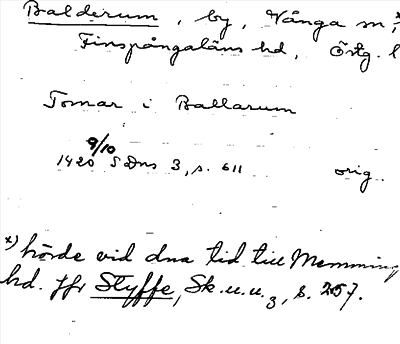 Balderum, by, Vånga sn,x)
Finspångaläns hd, Östg. l
Tomar i Ballarum
9/10
1420 SDns 3, s. 611 orig.
x) hörde vid dna tid till Memming
hd. jfr Styffe, Sk. u. u.3, s. 257.